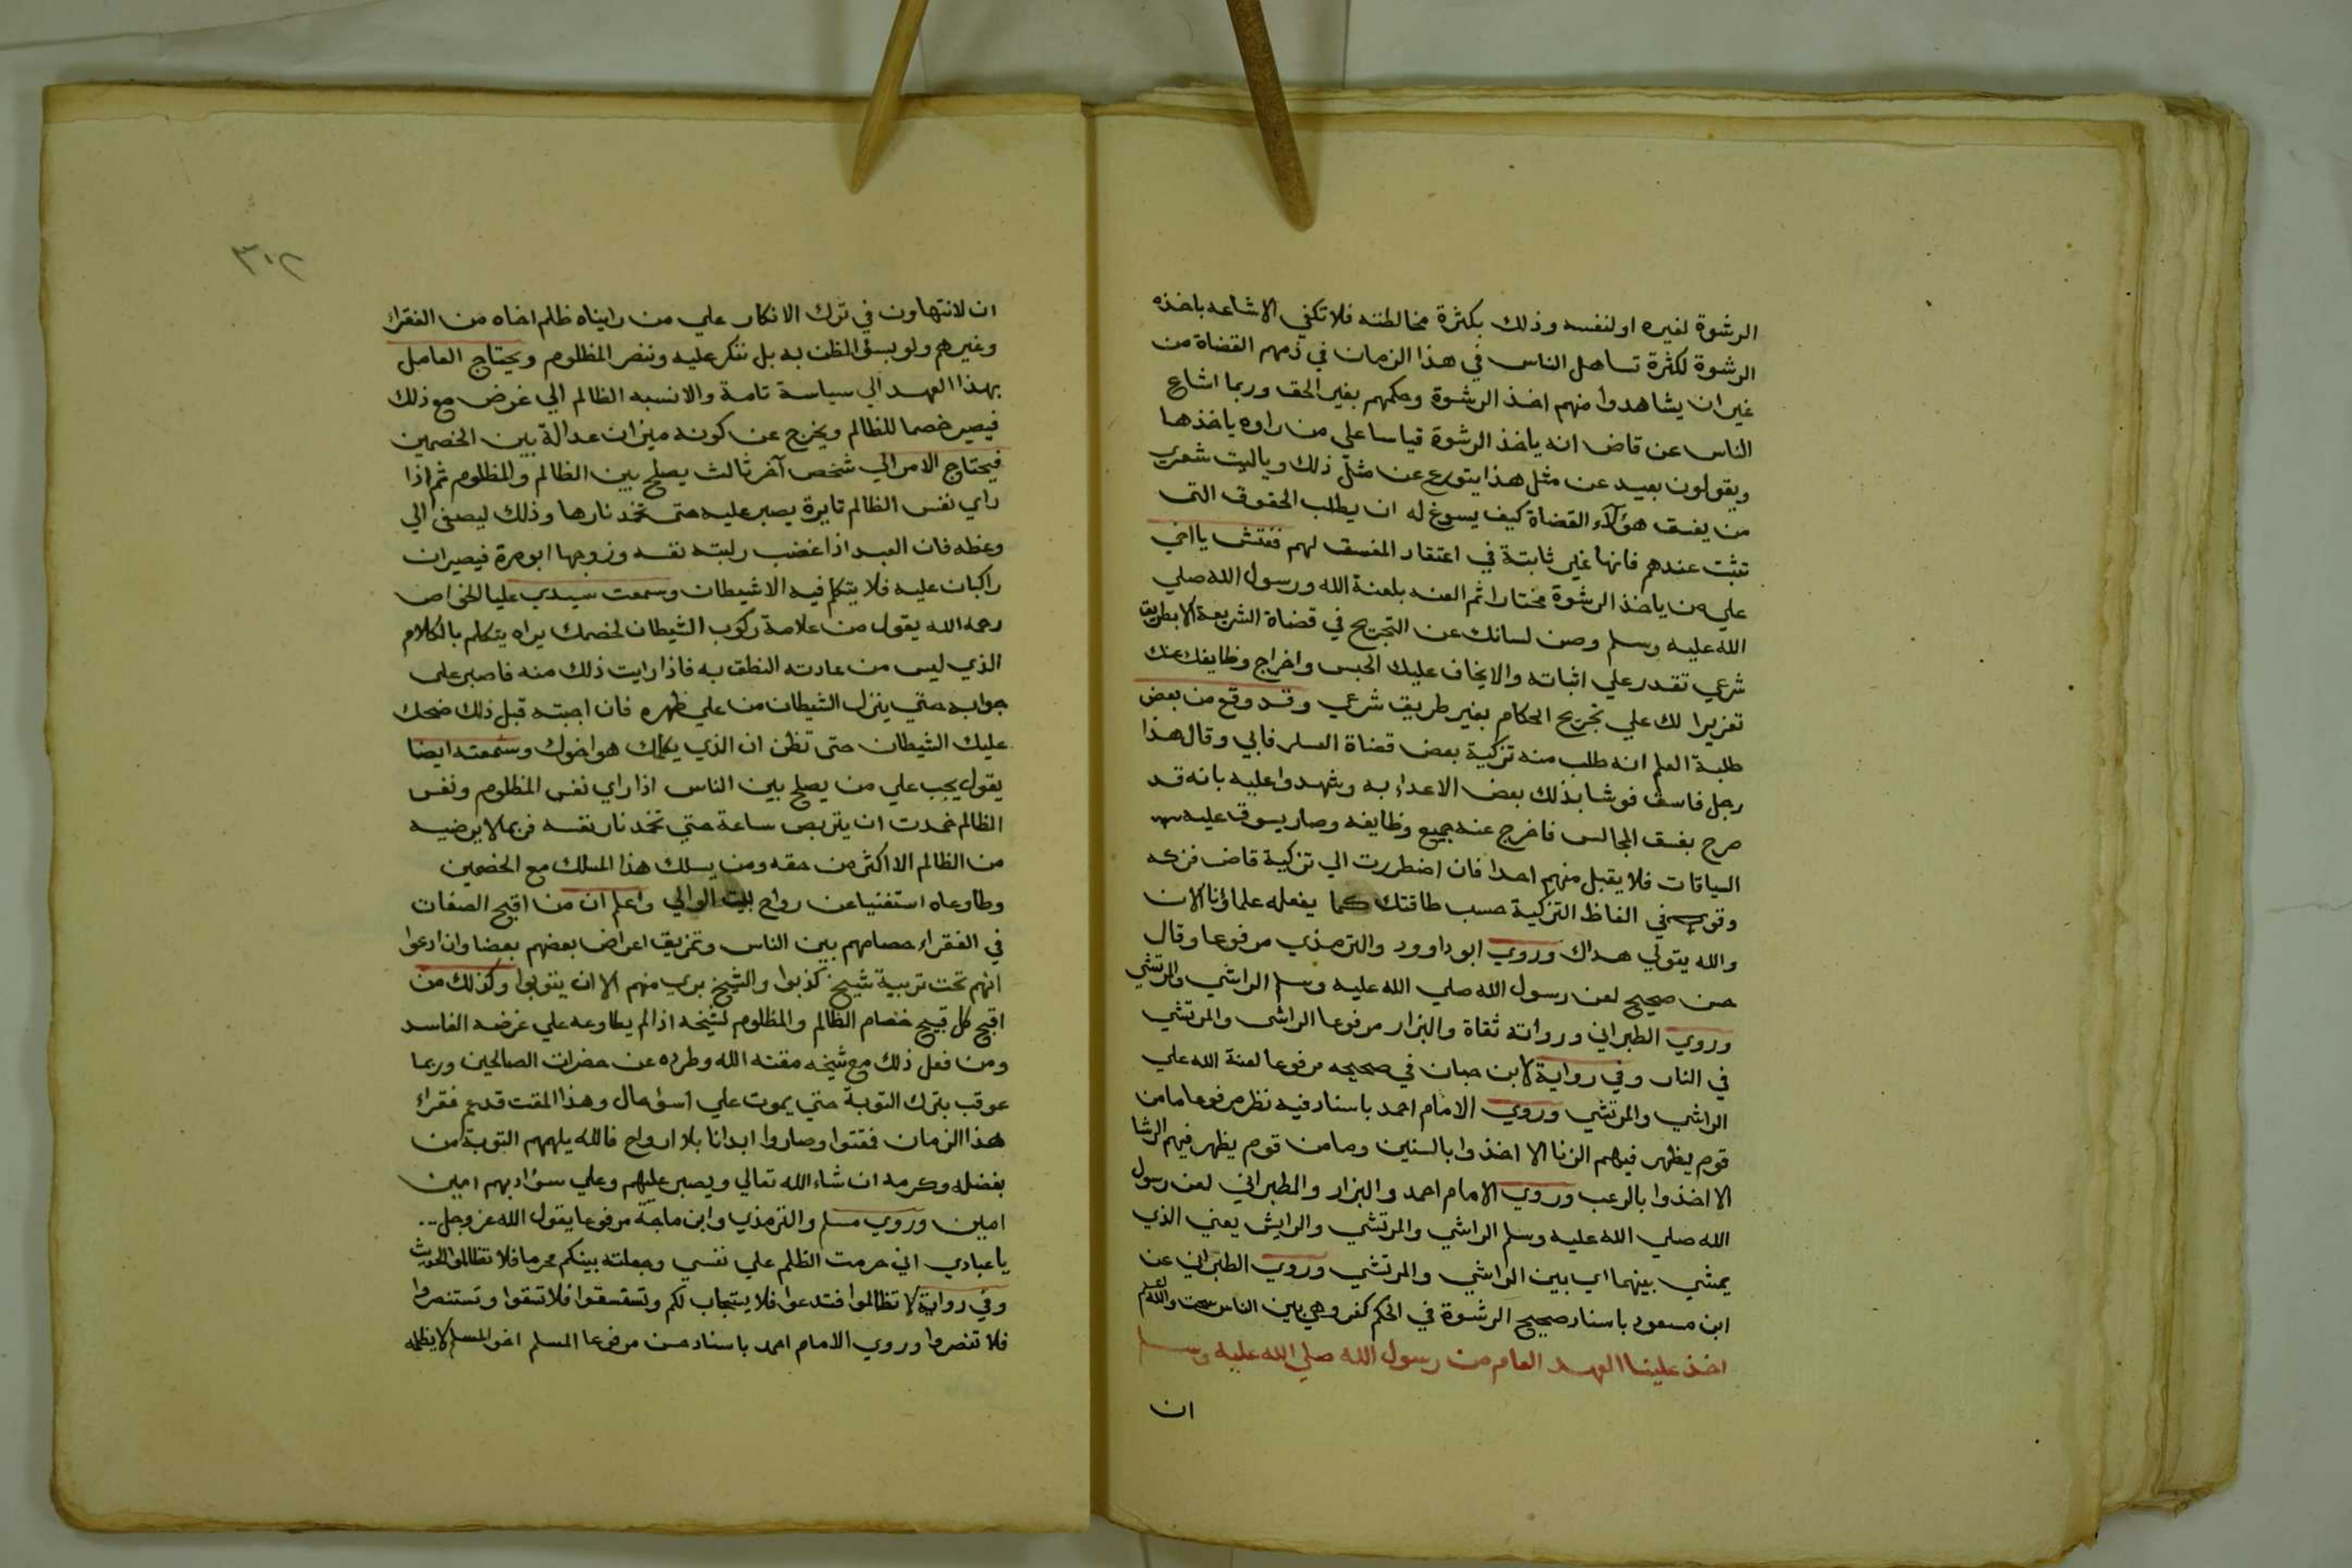 الرشوة لغيره او لنفسه وذلك بكثرة مخالطته فلا تكفي الاشاعه باخذه
الرشوة لكثرة تساهل الناس في هذا الزمان في ذمهم القضاة من
غير ان يشاهدوا منهم اخذ الرشوة وحكمهم بغير الحق وربما اشاع
الناس عن قاض انه ياخذ الرشوة قياسا علي من راوه ياخذها
ويقولون بعيد عن مثل هذا يتورع عن مثل ذلك وياليت شعري
من يفسق هؤلآء القضاة كيف يسوغ له ان يطلب الحقوق التى
تثبت عندهم فانها غير ثابتة في اعتقاد المفسق لهم ففتش يا اخي
علي من ياخذ الرشوة مختارا ثم العنه بلعنة الله ورسول الله صلي
الله عليه وسلم وصن لسانك عن التجريح في قضاة الشريعة الا بطريق
شرعي تقدر علي اثباته والا يخاف عليك الحبس واخراج وظايفك عنك
تعزيرا لك علي تجريح الحكام بغير طريق شرعي وقد وقع من بعض
طلبة العلم انه طلب منه تزكية بعض قضاة العسكر فابي وقال هذا
رجل فاسق فوشا بذلك بعض الاعداء به وشهدوا عليه بانه قد
صرح بفسق المجالس فاخرج عنه جميع وظايفه وصار يسوق عليهم
السياقات فلا يقبل منهم احدا فان اضطررت الي تزكية قاض فزكه
وتور في الفاظ التزكية حسب طاقتك كما يفعله علماؤنا الان
والله يتولي هداك وروي ابو داوود والترمذي مرفوعا وقال
حسن صحيح لعن رسول الله صلي الله عليه وسلم الراشي والمرتشي
وروي الطبراني ورواته ثقاة والبزار مرفوعا الراشى والمرتشي
في النار وفي رواية لابن حبان في صحيحه مرفوعا لعنة الله علي
الراشي والمرتشي وروي الامام احمد باسناد فيه نظر مرفوعا ما من
قوم يظهر فيهم الزنا الا اخذوا بالسنين وما من قوم يظهر فيهم الرشا
الا اخذوا بالرعب وروي الامام احمد والبزار والطبراني لعن رسول
الله صلي الله عليه وسلم الراشي والمرتشي والرايش يعني الذي
يمشي بينهما اي بين الراشي والمرتشي وروي الطبراني عن
ابن مسعود باسناد صحيح الرشوة في الحكم كفر وهي بين الناس سحت والله اعلم
اخذ علينا العهد العام من رسول الله صلي الله عليه وسلم
ان
٣٠٢
ان لا نتهاون في ترك الانكار علي من رايناه ظلم اخاه من الفقراء
وغيرهم ولو بسؤ الظن به بل ننكر عليه وننصر المظلوم ويحتاج العامل
بهذا العهد الي سياسة تامة والا نسبه الظالم الي غرض مع ذلك
فيصير خصما للظالم ويخرج عن كونه ميزان عدالة بين الخصمين
فيحتاج الامر الي شخص آخر ثالث يصلح بين الظالم والمظلوم ثم اذا
راي نفس الظالم تايرة يصبر عليه حتى تخمد نارها وذلك ليصغى الي
وعظه فان العبد اذا غضب ركبته نفسه وزوجها ابو مرة فيصيران
راكبان عليه فلا يتكلم فيه الا شيطان وسمعت سيدي عليا الخواص
رحمه الله يقول من علامة ركوب الشيطان لخصمك يراه يتكلم بالكلام
الذي ليس من عادته النطق به فاذا رايت ذلك منه فاصبر على
جوابه حتي ينزل الشيطان من علي ظهره فان اجبته قبل ذلك ضحك
عليك الشيطان حتى تظن ان الذي يكلمك هو اخوك وسمعته ايضا
يقول يجب علي من يصلح بين الناس اذا راي نفس المظلوم ونفس
الظالم خمدت ان يتربص ساعة حتي تخمد نار نفسه فربما لا يرضيه
من الظالم الا اكثر من حقه ومن يسلك هذا المسلك مع الخصمين
وطاوعاه استغنيا عن رواح بيت الوالي واعلم ان من اقبح الصفات
في الفقراء خصامهم بين الناس وتمزيق اعراض بعضهم بعضا وان ادعوا
انهم تحت تربية شيخ كذبوا والشيخ بري منهم الا ان يتوبوا وكذلك من
اقبح كل قبيح خصام الظالم والمظلوم لشيخه اذا لم يطاوعه علي غرضه الفاسد
ومن فعل ذلك مع شيخه مقته الله وطرده عن حضرات الصالحين وربما
عوقب بترك التوبة حتي يموت علي اسؤ حال وهذا المقت قد عم فقراء
هذا الزمان فمقتوا وصاروا ابدانا بلا ارواح فالله يلهمهم التوبة من
بفضله وكرمه ان شاء الله تعالي ويصبر عليهم وعلي سؤ ادبهم امين
امين وروي مسلم والترمذي وابن ماجة مرفوعا يقول الله عز وجل
يا عبادي اني حرمت الظلم علي نفسي وجعلته بينكم محرما فلا تظالموا الحديث
وفي رواية لا تظالموا فتدعوا فلا يستجاب لكم وتستسقوا فلا تسقوا وتستنصروا
فلا تنصروا وروي الامام احمد باسناد حسن مرفوعا المسلم اخو المسلم لا يظلمه